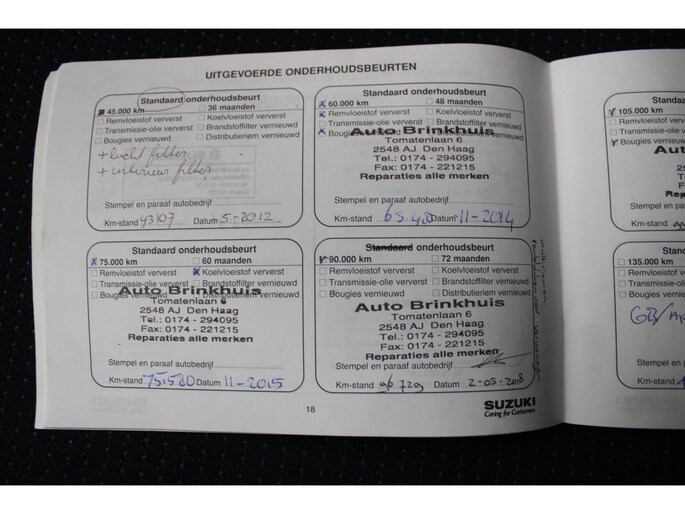 UITGEVOERDE ONDERHOUDSBEURTEN
Standaard onderhoudsbeurt
45.000 km 36 maanden
Remvloeistof ververst Koelvloeistof ververst
Transmissie-olie ververst Brandstoffilter vernieuwd
Bougies vernieuwd Distributieriem vernieuwd
+ lucht filter
+ interieur filter
Stempel en paraaf autobedrijf
Km-stand 43107 Datum 5-2012
Standaard onderhoudsbeurt
60.000 km 48 maanden
Remvloeistof ververst Koelvloeistof ververst
Transmissie-olie ververst Brandstoffilter vernieuwd
Bougies vernieuwd Distributieriem vernieuwd
Auto Brinkhuis
Tomatenlaan 6
2548 AJ Den Haag
Tel.: 0174 - 294095
Fax: 0174 - 221215
Reparaties alle merken
Stempel en paraaf autobedrijf
Km-stand 65.420 Datum 11-2014
Standaard onderhoudsbeurt
75.000 km 60 maanden
Remvloeistof ververst Koelvloeistof ververst
Transmissie-olie ververst Brandstoffilter vernieuwd
Bougies vernieuwd Distributieriem vernieuwd
Auto Brinkhuis
Tomatenlaan 6
2548 AJ Den Haag
Tel.: 0174 - 294095
Fax: 0174 - 221215
Reparaties alle merken
Stempel en paraaf autobedrijf
Km-stand 75.520 Datum 11-2015
Standaard onderhoudsbeurt
90.000 km 72 maanden
Remvloeistof ververst Koelvloeistof ververst
Transmissie-olie ververst Brandstoffilter vernieuwd
Bougies vernieuwd Distributieriem vernieuwd
Auto Brinkhuis
Tomatenlaan 6
2548 AJ Den Haag
Tel.: 0174 - 294095
Fax: 0174 - 221215
Reparaties alle merken
Stempel en paraaf autobedrijf
Km-stand 96729 Datum 2-05-2018
18
SUZUKI
Caring for Customers
Standaard
105.000 km
Remvloeistof
Transmissie-
Bougies ver
135.000 km
Remvloeistof
Transmissie-
Bougies ve
Stempel en
Km-stand